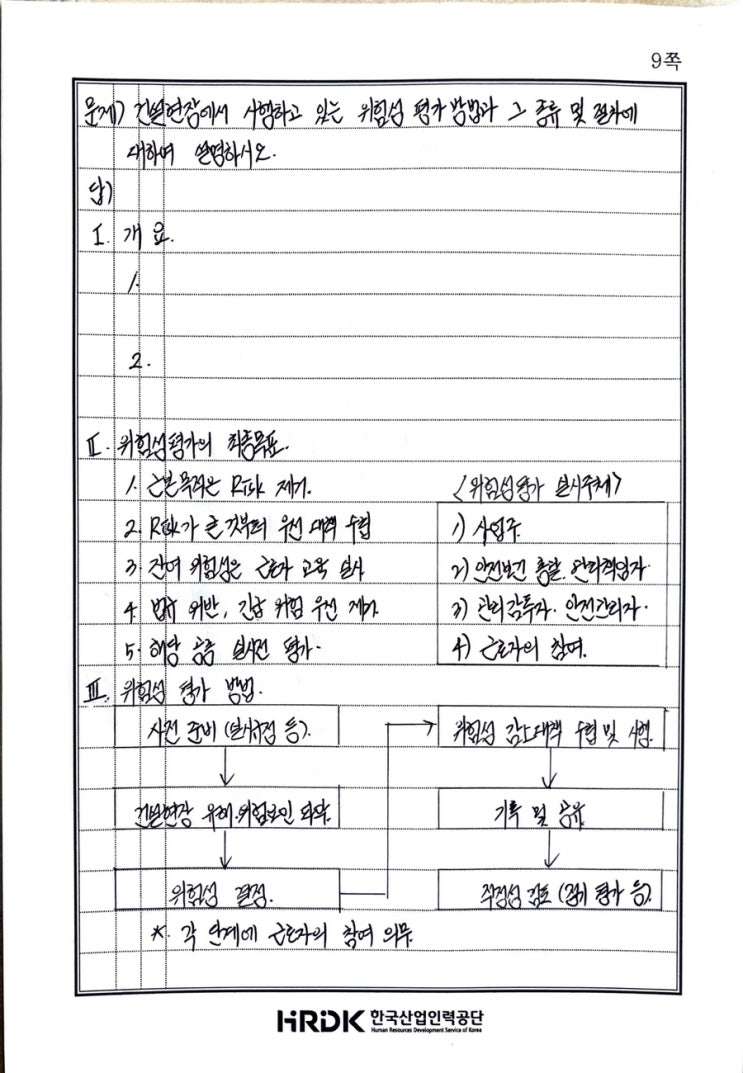 9쪽
문제) 건설현장에서 시행하고 있는 위험성 평가 방법과 그 종류 및 절차에
대하여 설명하시오.
답)
I. 개 요.
1.
2.
II. 위험성평가의 최종목표.
1. 근본목적은 Risk 제거.
2. Risk가 큰 것부터 우선 대책 수립
3. 잔여 위험성은 근로자 교육 실시
4. 법규 위반, 긴급 위험 우선 제거.
5. 해당 공종 실시전 평가.
<위험성평가 실시주체>
1) 사업주.
2) 안전보건 총괄. 관리책임자.
3) 관리감독자. 안전관리자.
4) 근로자의 참여.
III. 위험성 평가 방법.
사전 준비 (실시규정 등).
건설현장 유해.위험요인 파악.
위험성 결정.
위험성 감소대책 수립 및 시행.
기록 및 공유
적정성 검토 (정기 평가 등).
* 각 단계에 근로자의 참여 의무.
HRDK 한국산업인력공단
Human Resources Development Service of Korea